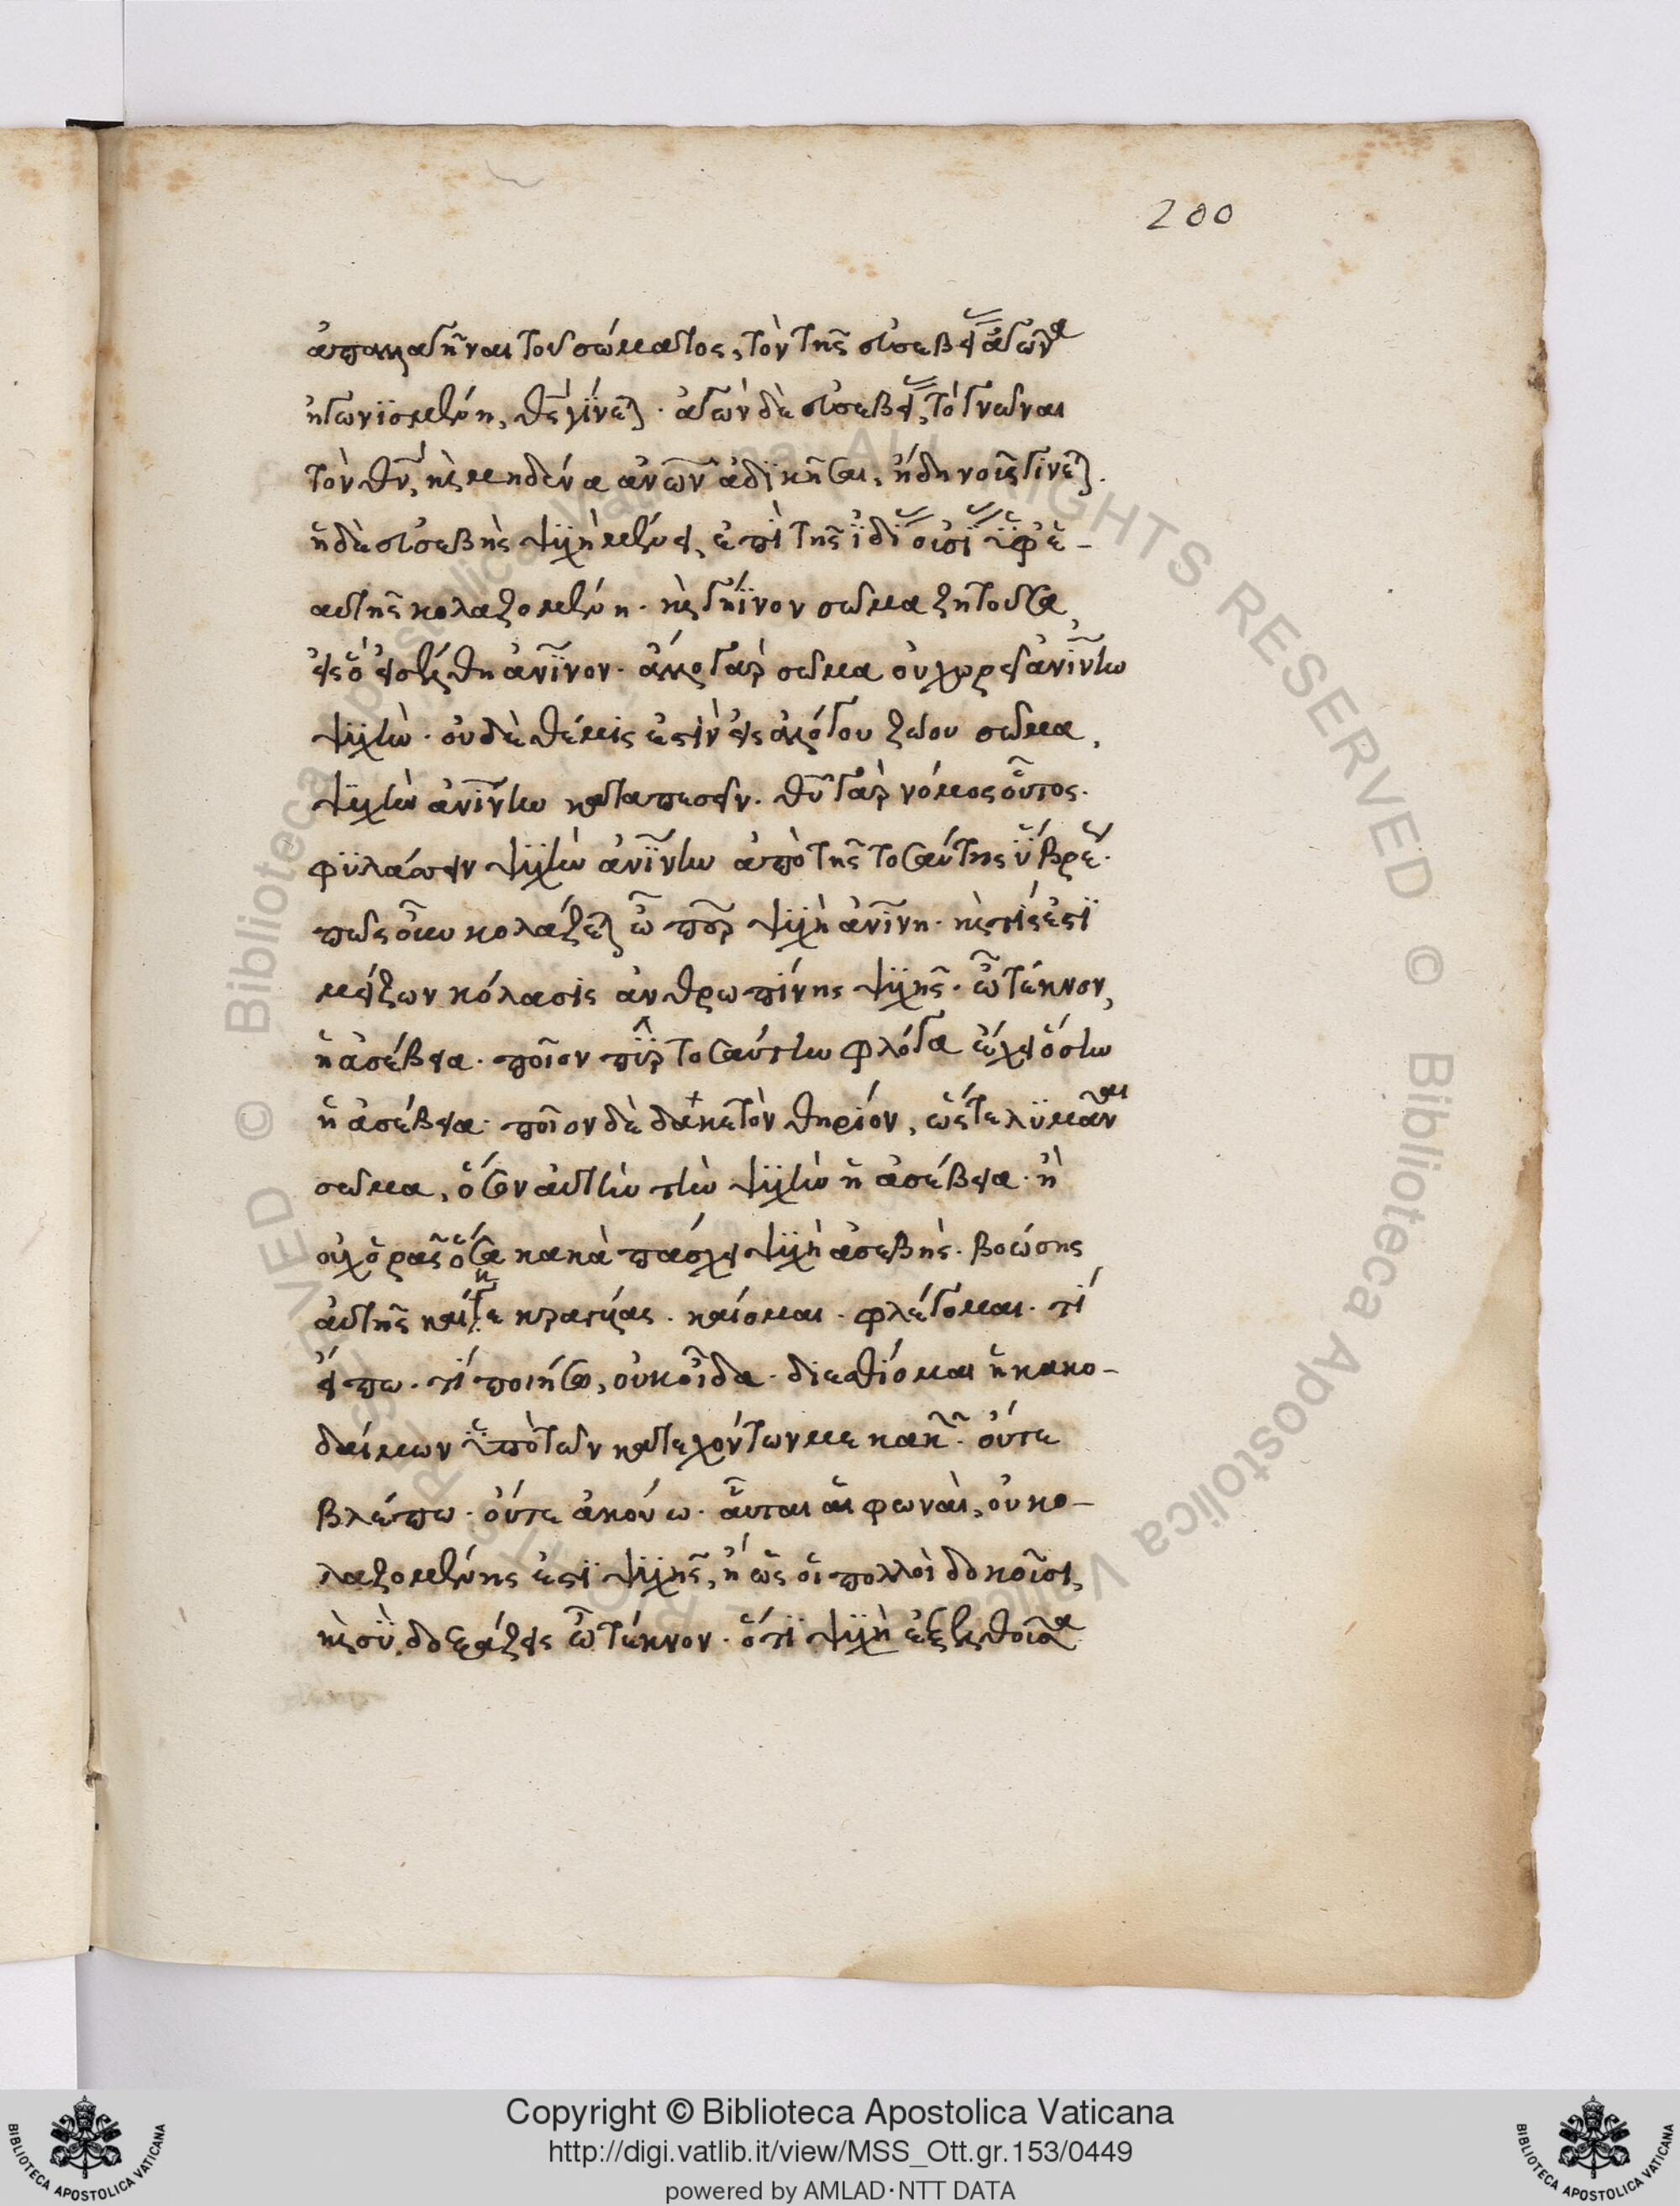 200
ἀπαλλαγῆναι τοῦ σώματος, τὸν τῆς εὐσεβείας ἀγῶνα
ἠγωνισμένη, θεῖα γίνεται. ἀγὼν δὲ εὐσεβείας, τὸ γνῶναι
τὸν θν, καὶ μηδένα ἀνων ἀδικῆσαι, ἤδη νοῦς γίνεται.
ἡ δὲ ἀσεβὴς ψυχὴ μένει, ἐπὶ τῆς ἰδίας οὐσίας ὑφ' ἑ-
αυτῆς κολαζομένη. καὶ γήϊνον σῶμα ζητοῦσα,
εἰς ὃ εἰσέλθη ἀνινον. ἄλλο γὰρ σῶμα οὐ χωρεῖ ἀνίνην
ψυχὴν. οὐδὲ θέμις ἐστὶν εἰς ἀλόγου ζώου σῶμα,
ψυχὴν ἀνίνην καταπεσεῖν. θυ γὰρ νόμος οὗτος.
φυλάσσειν ψυχὴν ἀνίνην ἀπὸ τῆς τοσαύτης ὕβρεως.
πῶς οὖν κολάζεται ὦ περ ψυχὴ ἀνίνη. καὶ τίς ἐστι
μείζων κόλασις ἀνθρωπίνης ψυχῆς. ὦ τέκνον,
ἡ ἀσέβεια. ποῖον πῦρ τοσαύτην φλόγα ἔχει ὅσην
ἡ ἀσέβεια. ποῖον δὲ δακετὸν θηρίον, ὥστε λυμᾶναι
σῶμα, ὅσον αὐτὴν τὴν ψυχὴν ἡ ἀσέβεια. ἢ
οὐχ ὁρᾶς ὅσα κακὰ πάσχει ψυχὴ ἀσεβὴς. βοώσης
αὐτῆς καὶ κεκραγυίας. καίομαι. φλέγομαι. τί
εἴπω. τί ποιήσω, οὐκ οἶδα. διεσθίομαι ἡ κακο-
δαίμων ὑπὸ τῶν κατεχόντων με κακῶν. οὔτε
βλέπω. οὔτε ἀκούω. αὗται αἱ φωναὶ, οὐ κο-
λαζομένης ἐστὶ ψυχῆς, ἢ ὡς οἱ πολλοὶ δοκοῦσι,
καὶ σὺ, δοξάζεις ὦ τέκνον. ὅτι ψυχὴ ἐξελθοῦσα
Copyright © Biblioteca Apostolica Vaticana
http://digi.vatlib.it/view/MSS_Ott.gr.153/0449
powered by AMLAD·NTT DATA
BIBLIOTECA APOSTOLICA VATICANA
BIBLIOTECA APOSTOLICA VATICANA